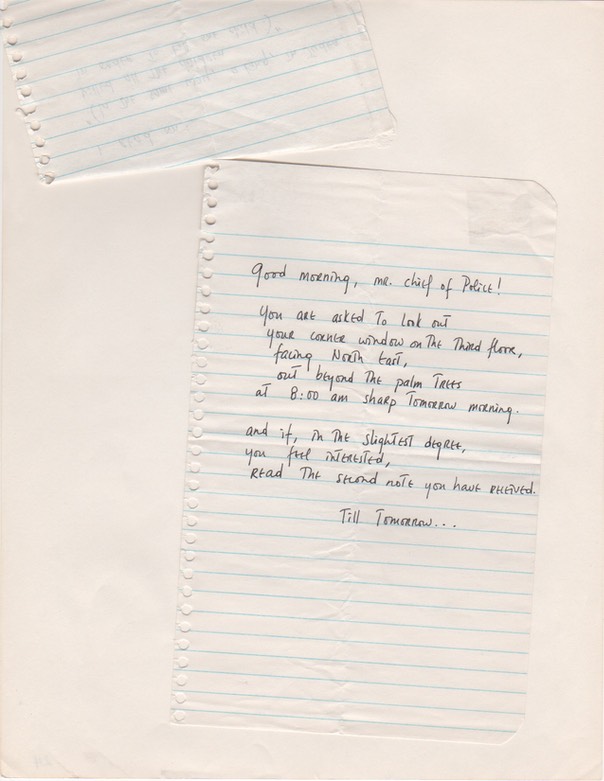 Good morning, mr. chief of Police!
You are asked to look out
your corner window on the third floor,
facing North East,
out beyond the palm trees
at 8:00 am sharp tomorrow morning.
and if, in the slightest degree,
you feel interested,
read the second note you have received.
Till Tomorrow...